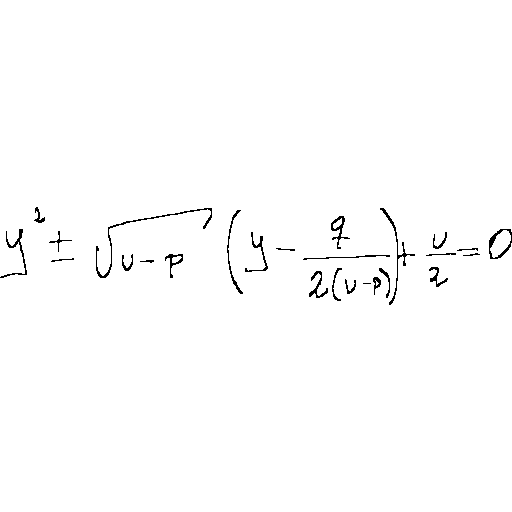 y² ± √(u-p) (y - q/(2(u-p))) + u/2 = 0